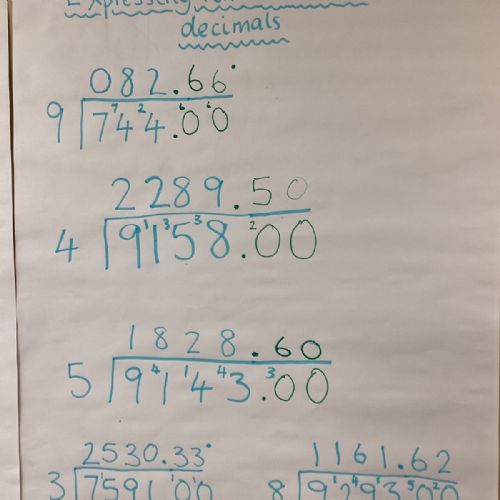 Expressing
decimals
082.66•
9 744.00
2289.50
4 9158.00
1828.60
5 9143.00
2530.33•
3 7591.00
1161.62
8 9293.00